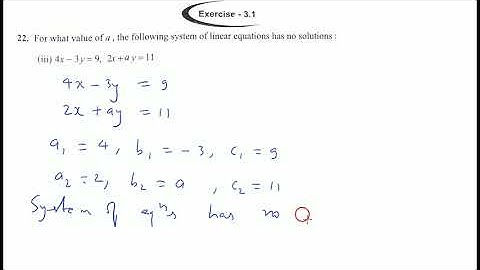 Exercise - 3.1
22. For what value of a, the following system of linear equations has no solutions :
(iii) 4x – 3y = 9, 2x + a y = 11
4x – 3y = 9
2x + ay = 11
a₁ = 4, b₁ = –3, c₁ = 9
a₂ = 2, b₂ = a, c₂ = 11
System of eqⁿs has no